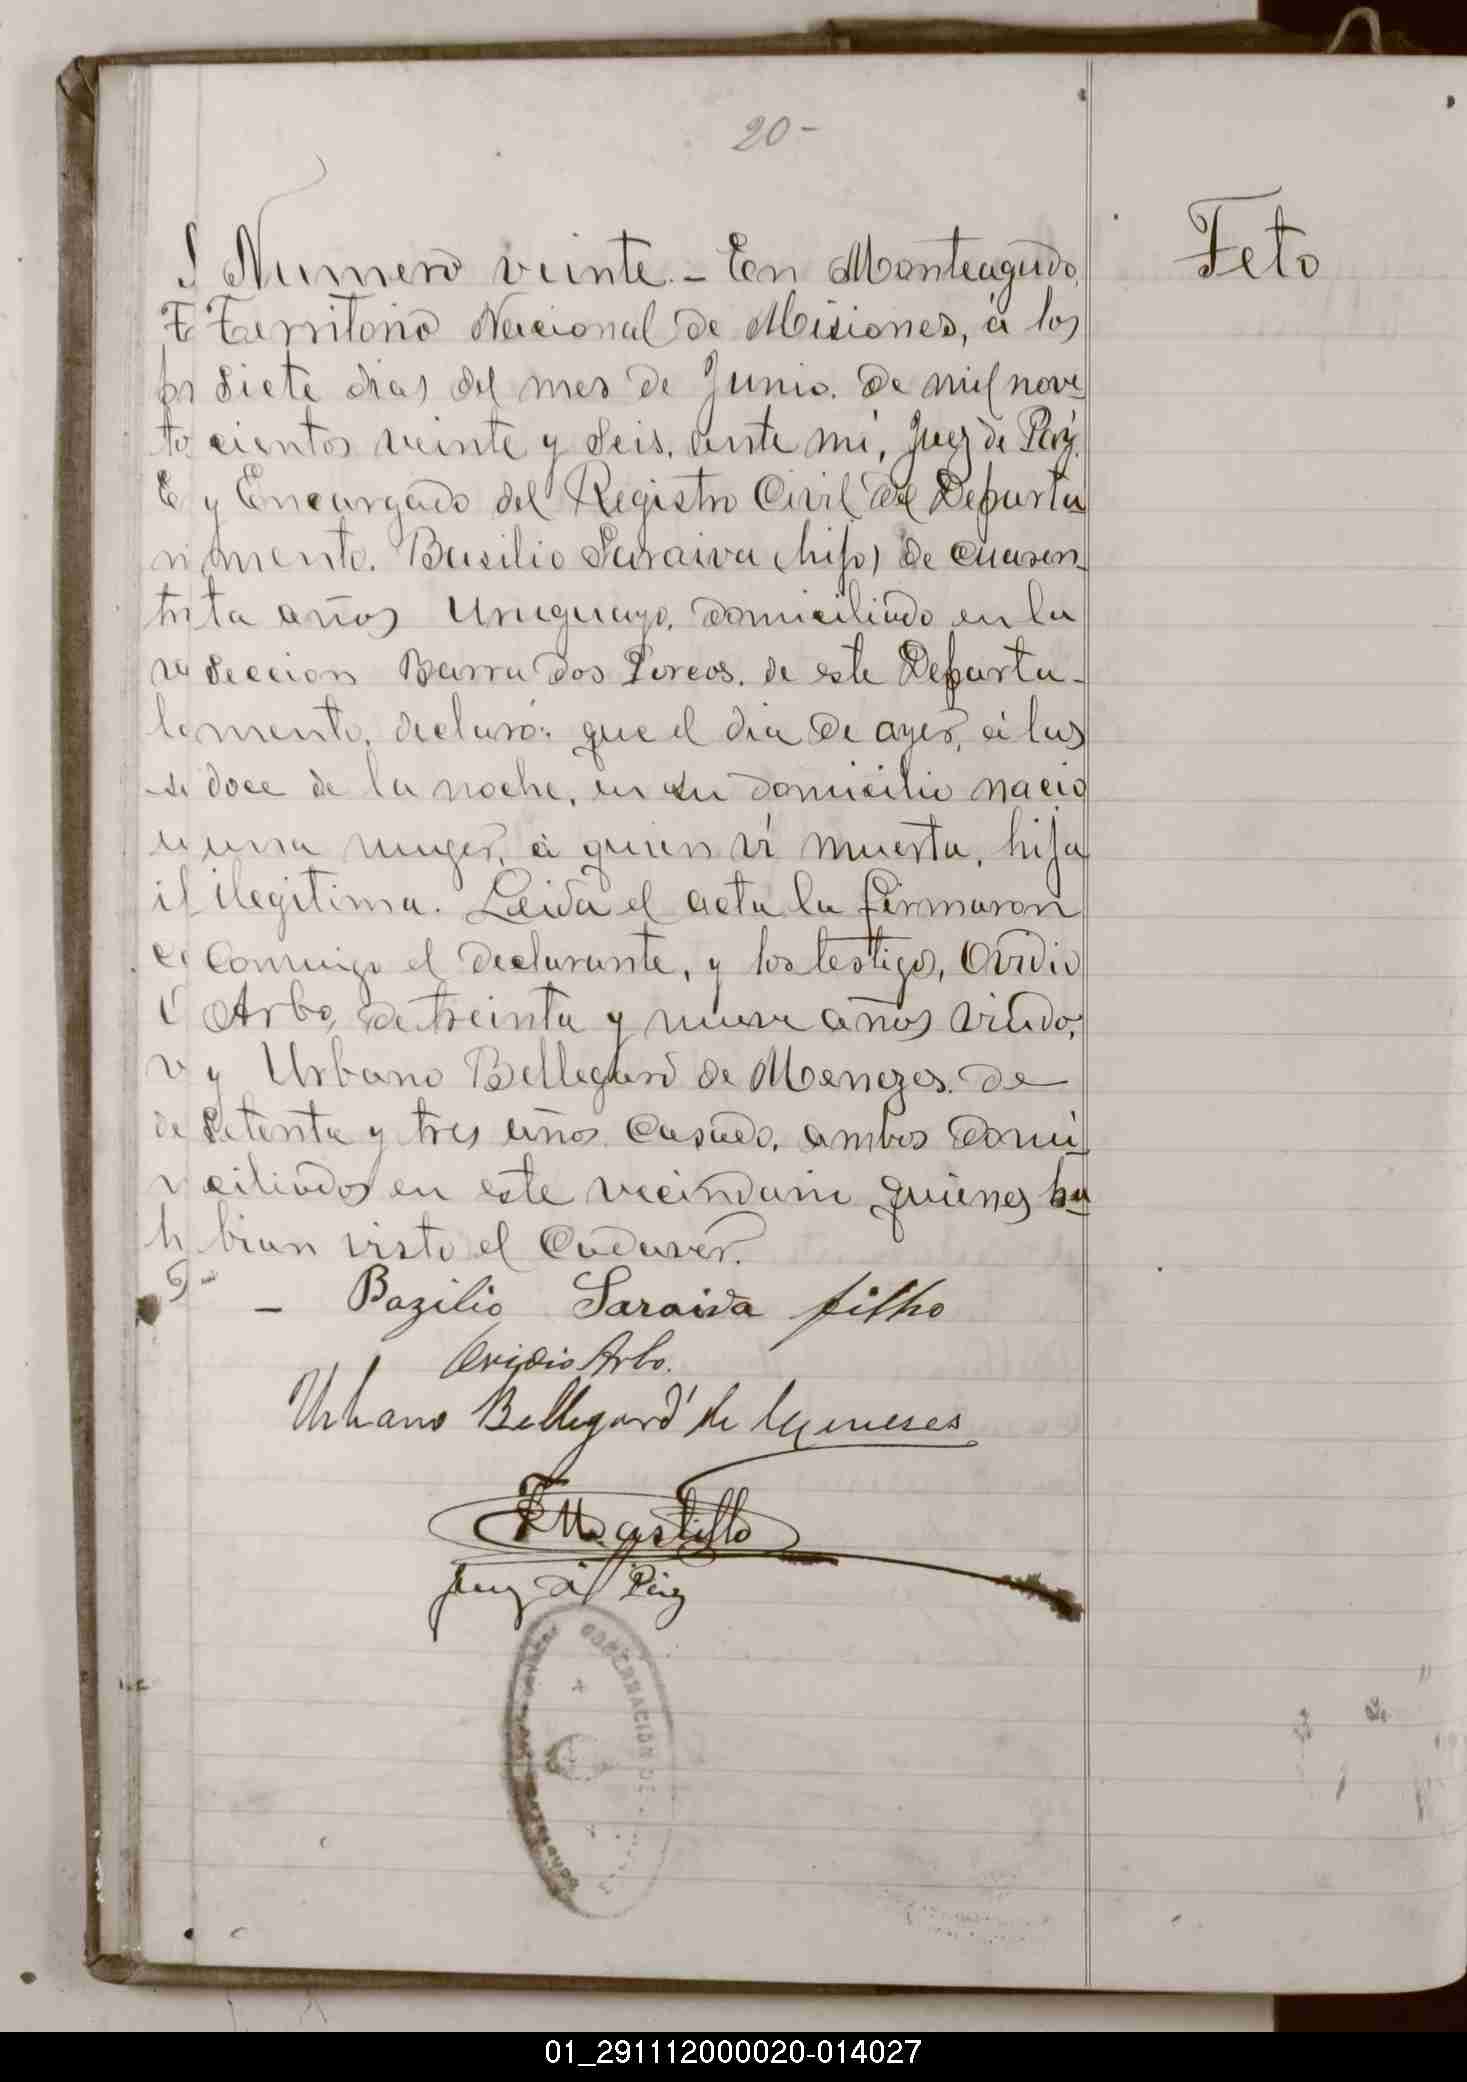 20-
Feto
Numero veinte.- En Monteagudo,
Territorio Nacional de Misiones, á los
siete dias del mes de Junio. de mil nove-
cientos veinte y seis. ante mí, Juez de Paz.
y Encargado del Registro Civil del Departa-
mento. Basilio Saraiva (hijo) de cuaren-
ta años Uruguayo, domiciliado en la
seccion Barra dos Porcos. de este Departa-
mento, declaró: que el dia de ayer, á las
doce de la noche, en su domicilio nacio
una muger, á quien ví muerta, hija
ilegitima. Leida el acta la firmaron
conmigo el declarante, y los testigos, Ovidio
Arbo, de treinta y nueve años viudo,
y Urbano Bellegard de Menezes. de
setenta y tres años casado, ambos domi-
ciliados en este vecindario quienes ha-
bian visto el Cadaver.
- Bazilio Saraiva filho
Ovidio Arbo.
Urbano Bellegard de Meneses
Juez de Paz
GOBERNACION DE
01_291112000020-014027